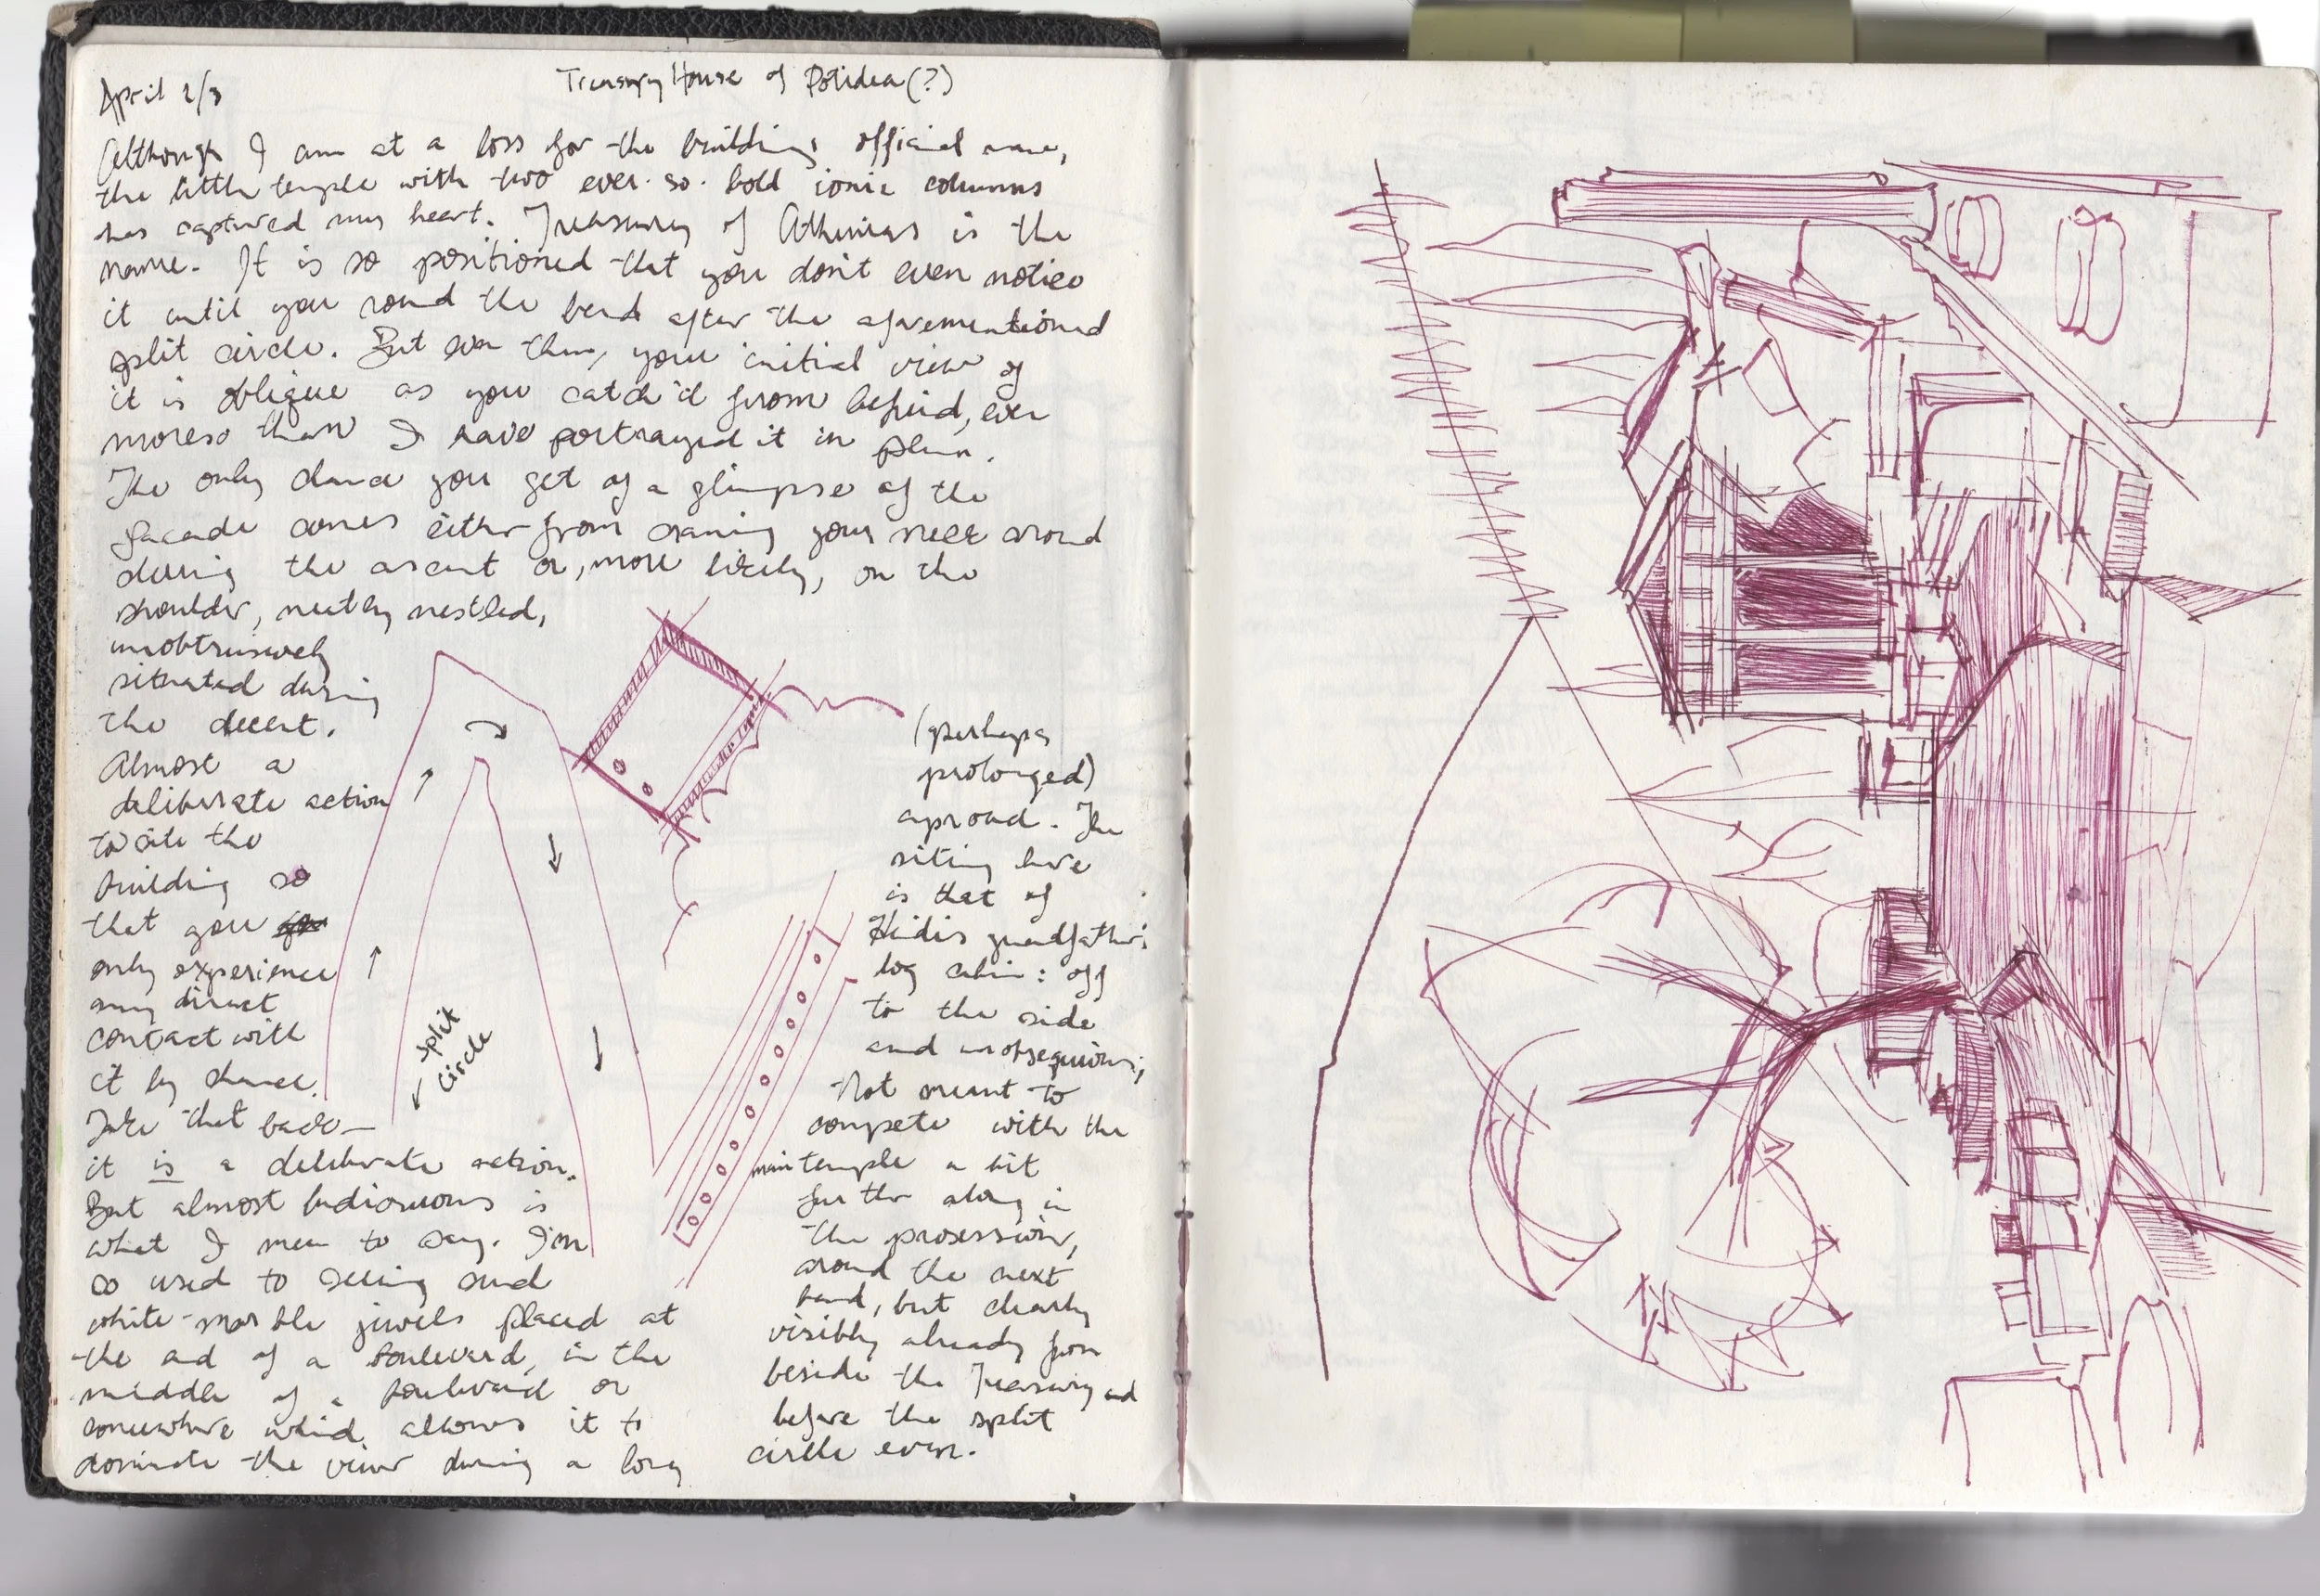 April 2/3
Treasury House of Potidea (?)
Although I am at a loss for the buildings official name,
the little temple with two ever-so-bold ionic columns
has captured my heart. Treasury of Athenians is the
name. It is so positioned that you don't even notice
it until you round the bend after the aforementioned
split circle. But even then, your initial view of
it is oblique as you catch it from behind, even
moreso than I have portrayed it in plan.
The only chance you get of a glimpse of the
facade comes either from craning your neck around
during the ascent or, more likely, on the
shoulder, neatly nestled,
unobtrusively
situated during
the decent.
Almost a
deliberate action
to site the
building so
that you
only experience
any direct
contact with
it by chance.
Take that back—
it is a deliberate action.
But almost ludicruous is
what I mean to say. I'm
so used to seeing such
white-marble jewels placed at
the end of a boulevard, in the
middle of a boulevard or
somewhere which allows it to
dominate the view during a long
split
circle
(perhaps
prolonged)
aproach. The
siting here
is that of
Heidis grandfather's
log cabin: off
to the side
and unobsequious;
Not meant to
compete with the
main temple a bit
further along in
the prosession,
around the next
bend, but clearly
visibly already from
beside the Treasury and
before the split
circle even.